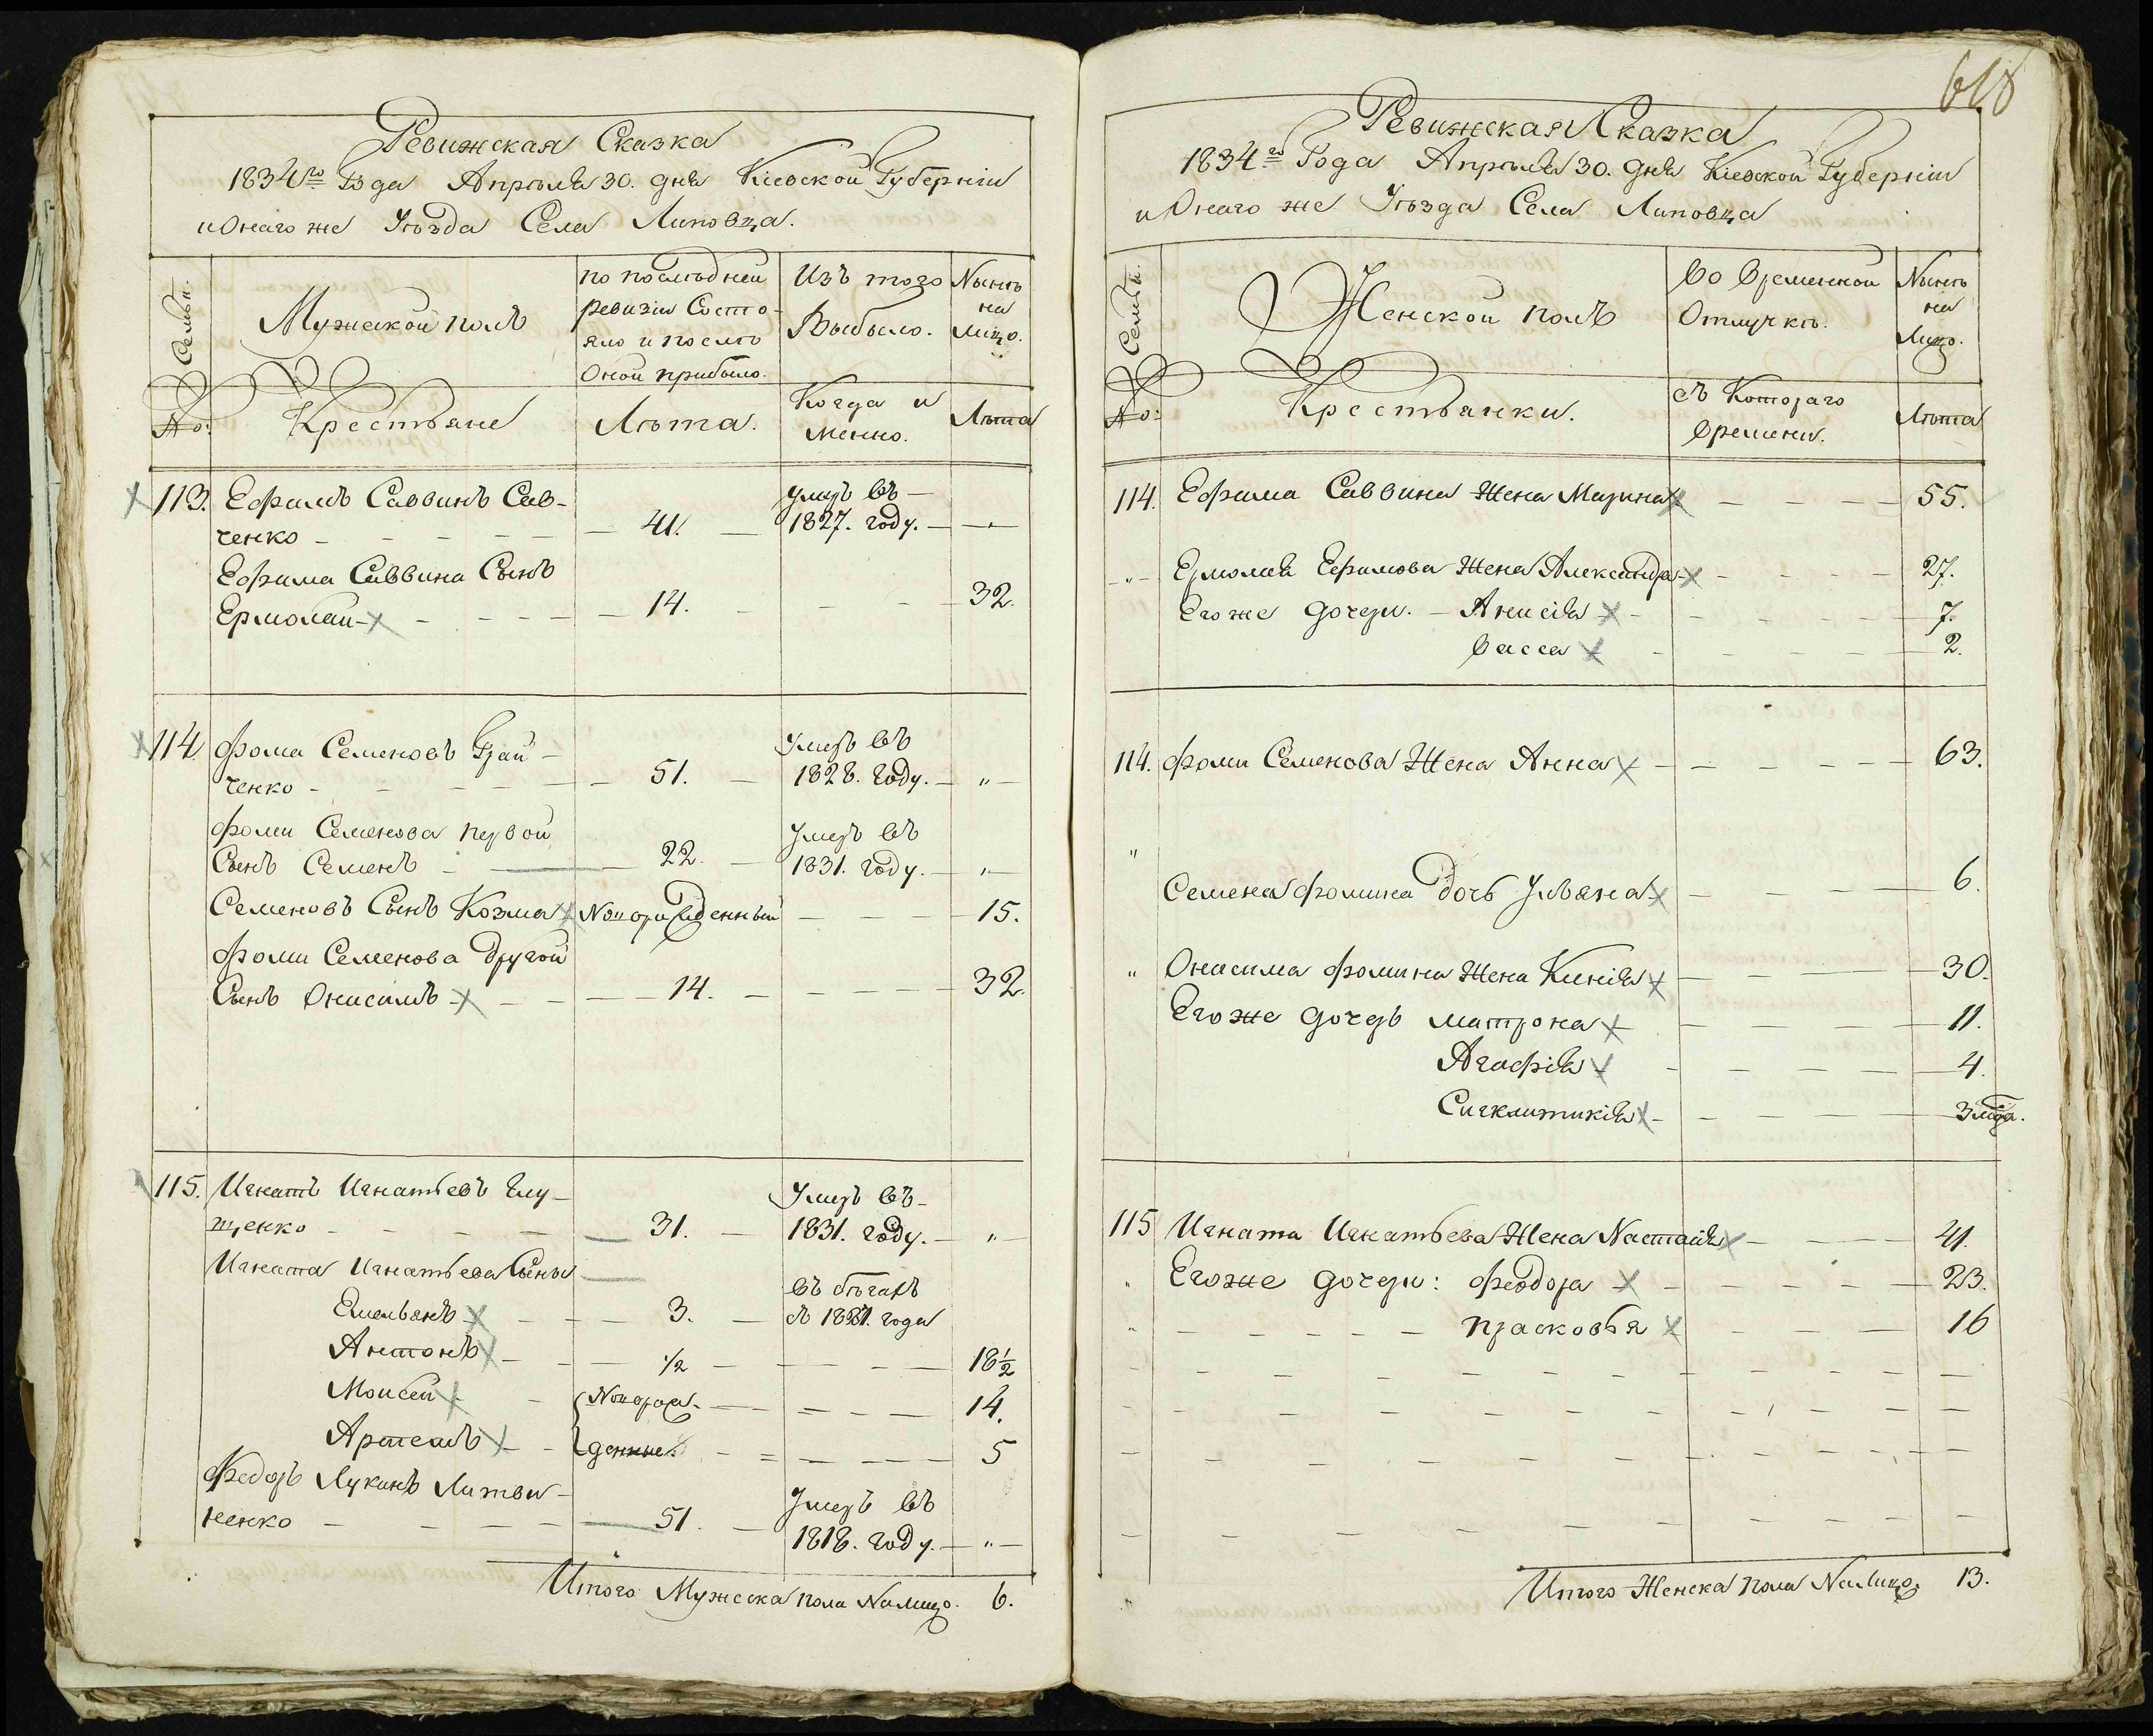 Ревижская Сказка
1834го Года Апрѣля 30. дня Кіевской Губерніи
и Онаго же Уѣзда Села Липовца.
Семьи.
Мужеской полъ
по послѣдней
ревизіи Состо-
яло и послѣ
Оной прибыло.
Изъ того
Выбыло.
Нынѣ
на
лицо.
No:
Крестьяне
Лѣта.
Когда и
менно.
Лѣта
113. Ефимъ Саввинъ Сав-
ченко - 41. - умеръ въ 1827. году. -
Ефима Саввина Сынъ
Ермолай - 14. - 32.
114 Фома Семеновъ
ченко - 51. - Умеръ въ 1828. году. - „ -
Фоми Семенова первой
Сынъ Семенъ - 22. - Умеръ въ 1831. году. - „ -
Семеновъ Сынъ Козма Новорожденный - 15.
Фоми Семенова другой
Сынъ Онисимъ - 14. - 32.
115. Игнатъ Игнатьевъ Глу-
щенко - 31. - Умеръ въ 1831. году. - „ -
Игната Игнатьева Сыны
Емельянъ - 3. - въ бѣгахъ съ 1821. года
Антонъ - 1/2 - 18 1/2
Моисей - Неворож- - 14.
Артемъ - денные. - 5
Федоръ Лукинъ Литви-
ненко - 51. - Умеръ въ 1818. году. - „ -
Итого Мужеска пола Налицо. 6.
618
Ревижская Сказка
1834го Года Апрѣля 30. дня Кіевской Губерніи
и Онаго же Уѣзда Села Липовца
Семьи.
Женской полъ
Во временной
Отлучкѣ.
Нынѣ
на
Лицо.
No:
Крестьянки.
съ Котораго
времени.
Лѣта
114. Ефима Саввина Жена Марина - 55.
- „ - Ермолая Ефимова Жена Александра - 27.
Его же дочери. - Анисія - 7.
Васса - 2.
114. Фоми Семенова Жена Анна - 63.
„ Семена Фомина Дочь Ульяна - 6.
„ Онисима Фомина Жена Кинія - 30.
Его же дочерь матрона - 11.
Агафія - 4.
Сигклитикія -
115 Игната Игнатьева Жена Настасія - 41.
„ Его же дочери: Феодора - 23.
„ - Прасковья - 16
Итого Женска пола Налицо. 13.